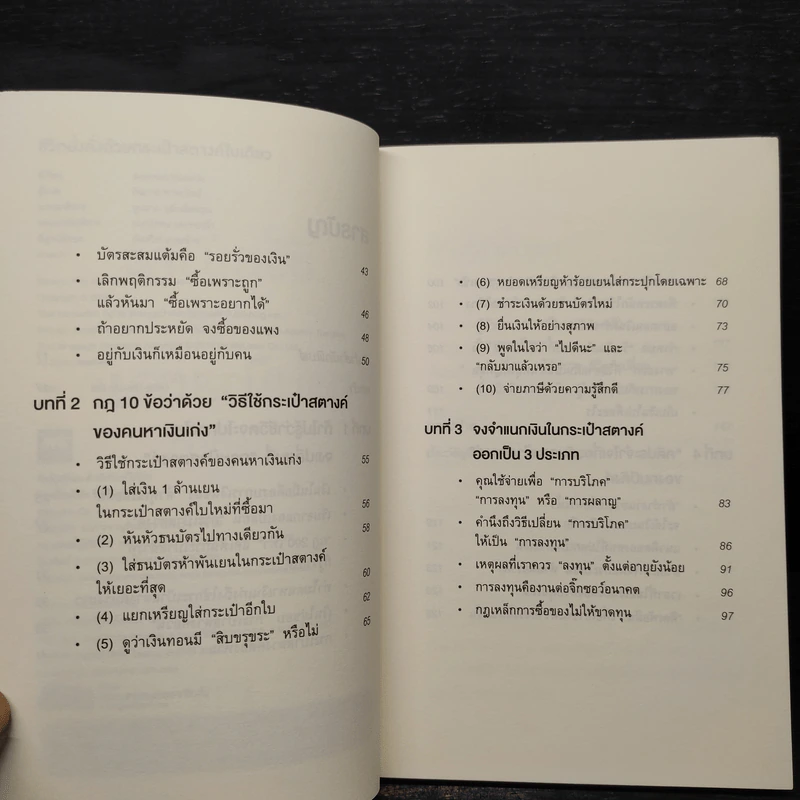 • บัตรสะสมแต้มคือ "รอยรั่วของเงิน" 43
• เลิกพฤติกรรม "ซื้อเพราะถูก"
แล้วหันมา "ซื้อเพราะอยากได้" 46
• ถ้าอยากประหยัด จงซื้อของแพง 48
• อยู่กับเงินก็เหมือนอยู่กับคน 50
บทที่ 2 กฎ 10 ข้อว่าด้วย "วิธีใช้กระเป๋าสตางค์
ของคนหาเงินเก่ง"
• วิธีใช้กระเป๋าสตางค์ของคนหาเงินเก่ง 55
• (1) ใส่เงิน 1 ล้านเยน
ในกระเป๋าสตางค์ใบใหม่ที่ซื้อมา 56
• (2) หันหัวธนบัตรไปทางเดียวกัน 58
• (3) ใส่ธนบัตรห้าพันเยนในกระเป๋าสตางค์
ให้เยอะที่สุด 60
• (4) แยกเหรียญใส่กระเป๋าอีกใบ 62
• (5) ดูว่าเงินทอนมี "สิบขรุขระ" หรือไม่ 65
• (6) หยอดเหรียญห้าร้อยเยนใส่กระปุกโดยเฉพาะ 68
• (7) ชำระเงินด้วยธนบัตรใหม่ 70
• (8) ยื่นเงินให้อย่างสุภาพ 73
• (9) พูดในใจว่า "ไปดีนะ" และ
"กลับมาแล้วเหรอ" 75
• (10) จ่ายภาษีด้วยความรู้สึกดี 77
บทที่ 3 จงจำแนกเงินในกระเป๋าสตางค์
ออกเป็น 3 ประเภท
• คุณใช้จ่ายเพื่อ "การบริโภค"
"การลงทุน" หรือ "การผลาญ" 83
• คำนึงถึงวิธีเปลี่ยน "การบริโภค"
ให้เป็น "การลงทุน" 86
• เหตุผลที่เราควร "ลงทุน" ตั้งแต่อายุยังน้อย 91
• การลงทุนคืองานต่อจิ๊กซอว์อนาคต 96
• กฎเหล็กการซื้อของไม่ให้ขาดทุน 97